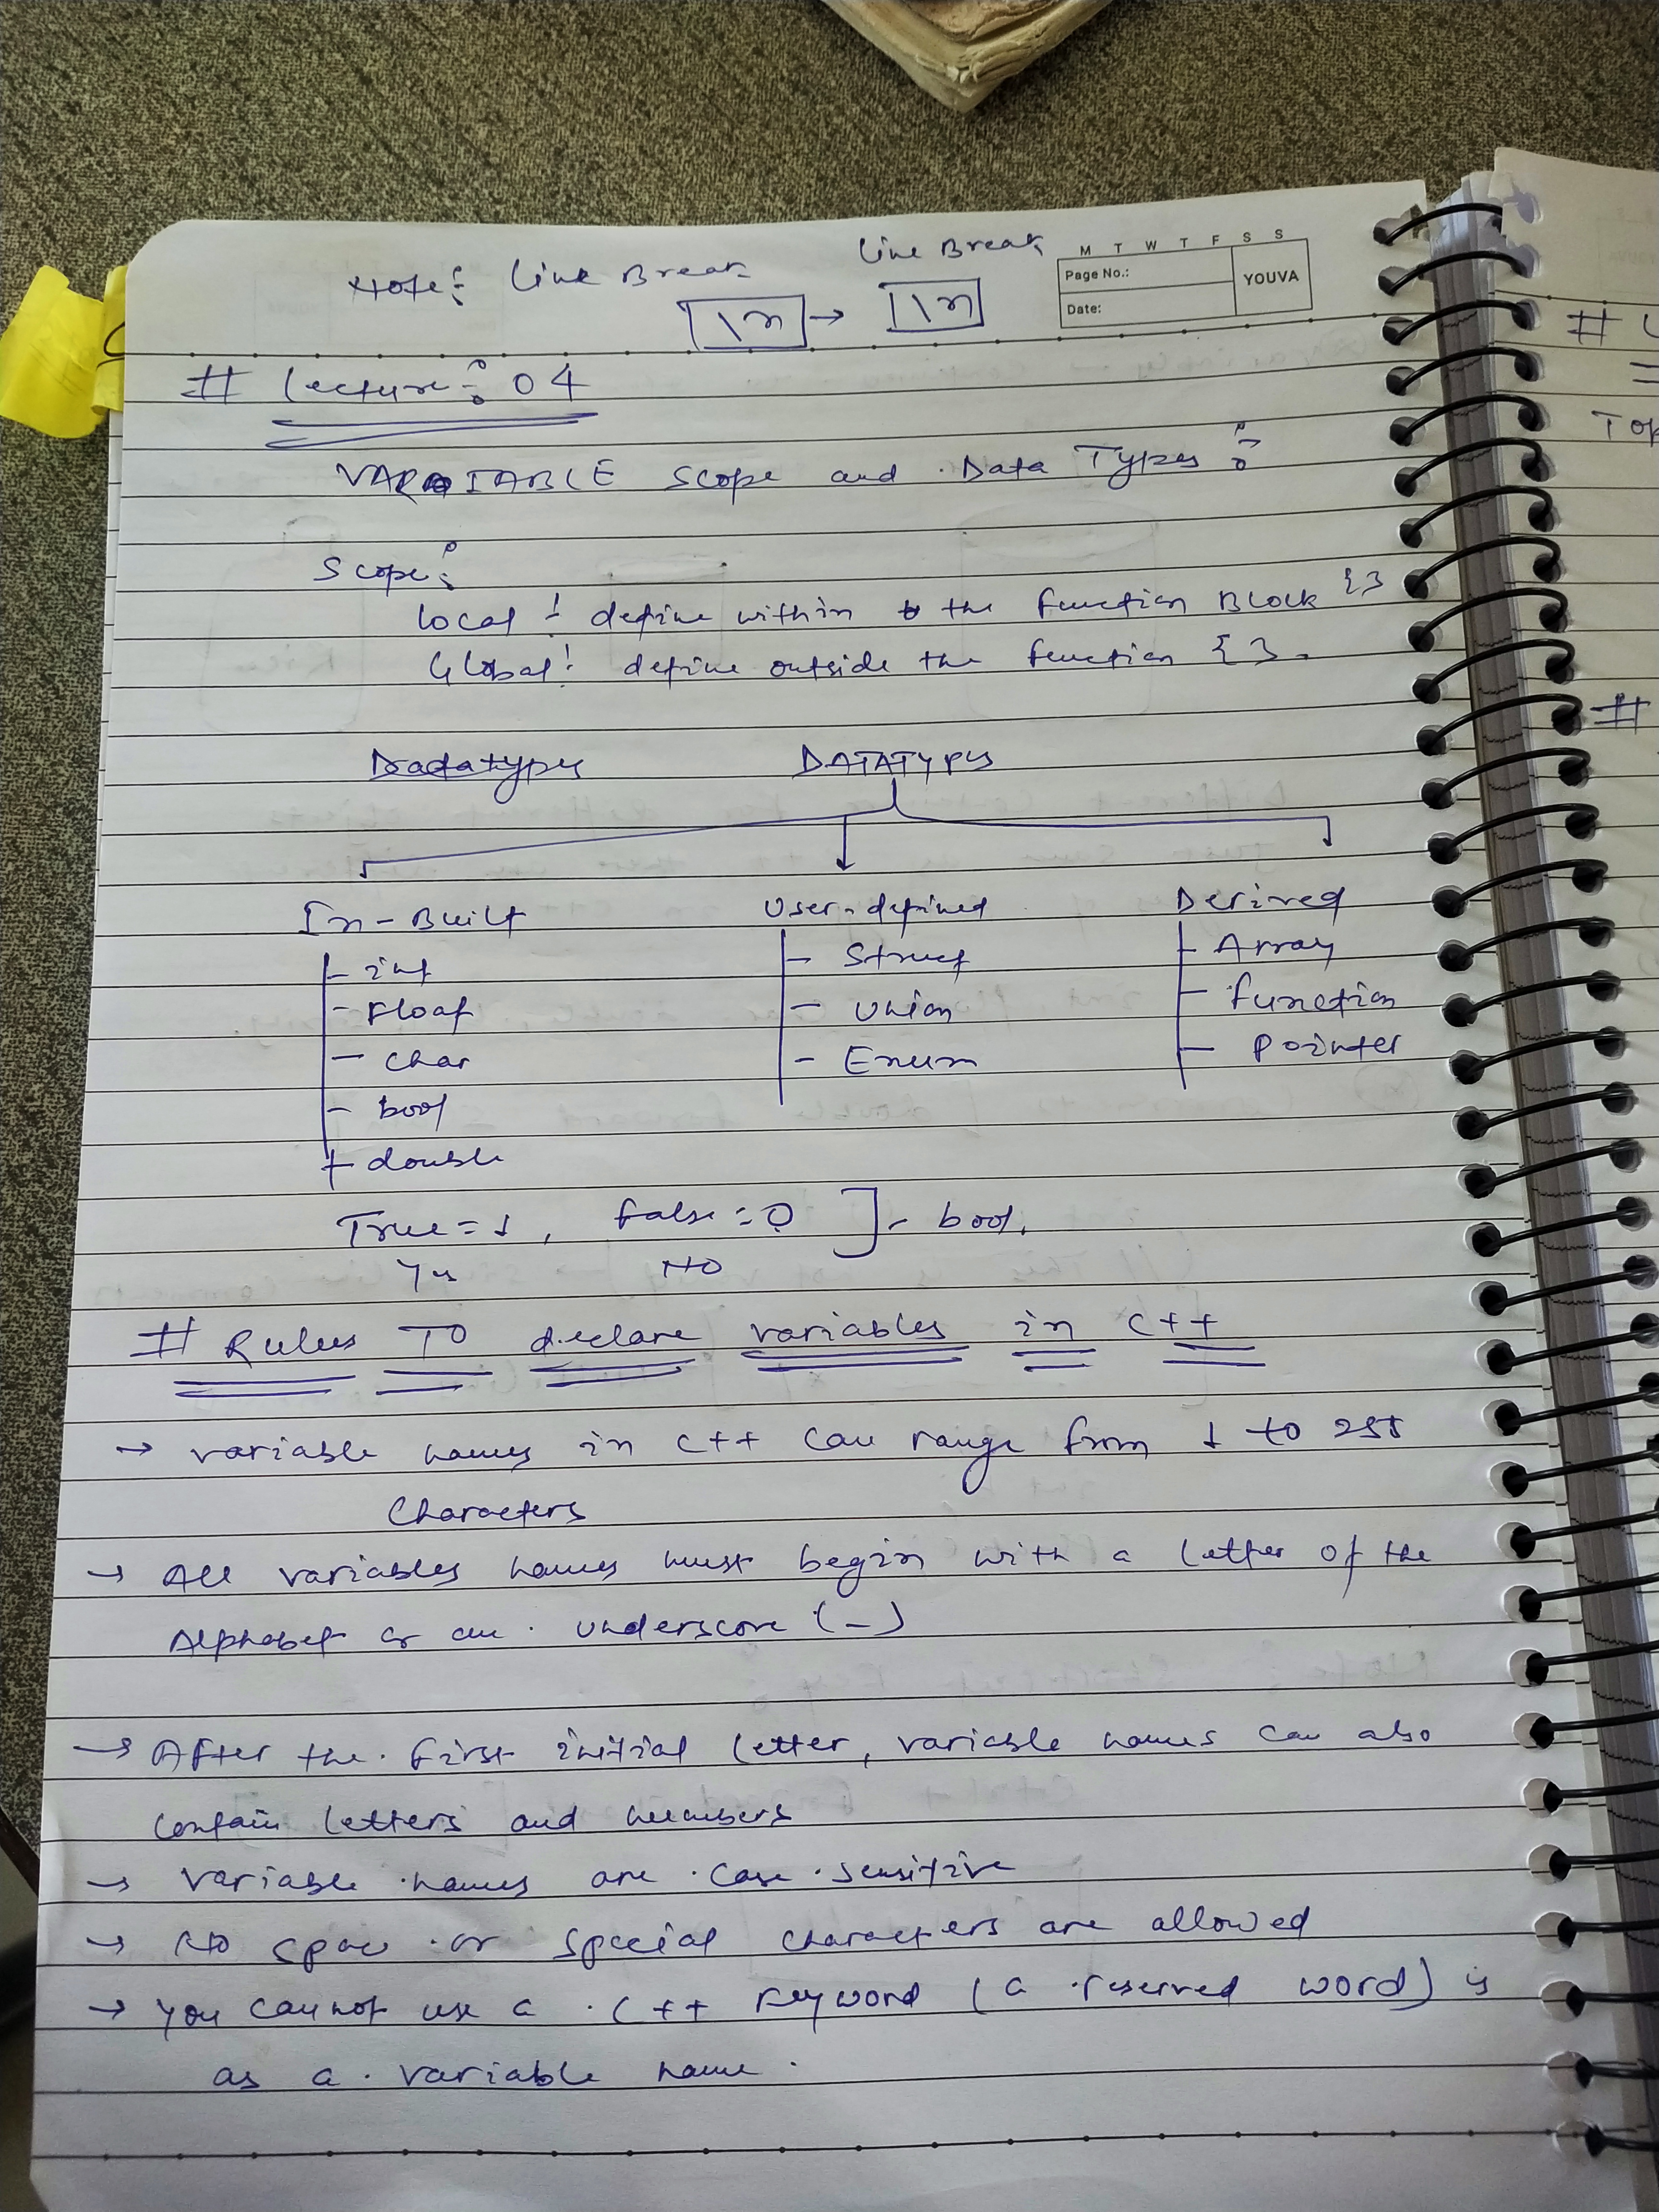 Note: Line Break
Line Break
\n → \n
M T W T F S S
Page No.:
Date:
YOUVA
# Lecture: 04
VARIABLE Scope and Data Types:
Scope:
Local: define within the function Block {}
Global: define outside the function {}.
Dadatypes DATATYPES
In-Built User-defined Derived
- int - Struct - Array
- Float - Union - function
- char - Enum - Pointer
- bool
- double
True = 1, false = 0 ] - bool.
Yes NO
# Rules TO declare variables in C++
→ variable names in C++ can range from 1 to 255
Characters
→ All variables names must begin with a letter of the
Alphabet or an underscore (_)
→ After the first initial letter, variable names can also
contain letters and numbers
→ Variable names are case sensitive
→ No space or special characters are allowed
→ You cannot use a C++ keyword (a reserved word) is
as a variable name.
#
Top
#